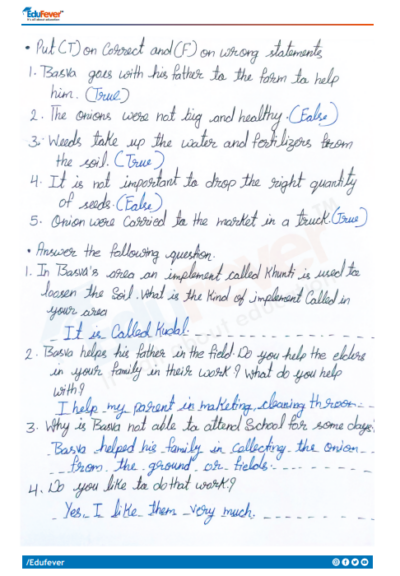 EduFever
• Put (T) on Correct and (F) on wrong statements
1. Basva goes with his father to the farm to help
him. (True)
2. The onions were not big and healthy. (False)
3. Weeds take up the water and fertilizers from
the soil. (True)
4. It is not important to drop the right quantity
of seeds. (False)
5. Onion were Carried to the market in a truck. (True)
• Answer the following question.
1. In Basva's area an implement called Khunti is used to
loosen the Soil. What is the Kind of implement Called in
your area
It is Called Kudal.
2. Basva helps his father in the field. Do you help the elders
in your family in their work? What do you help
with?
I help my parent in maketing, cleaning
3. Why is Basva not able to attend School for some days.
Basva helped his family in collecting the onion
from the ground or fields.
4. Do you like to do that work?
Yes, I like them very much.
/Edufever